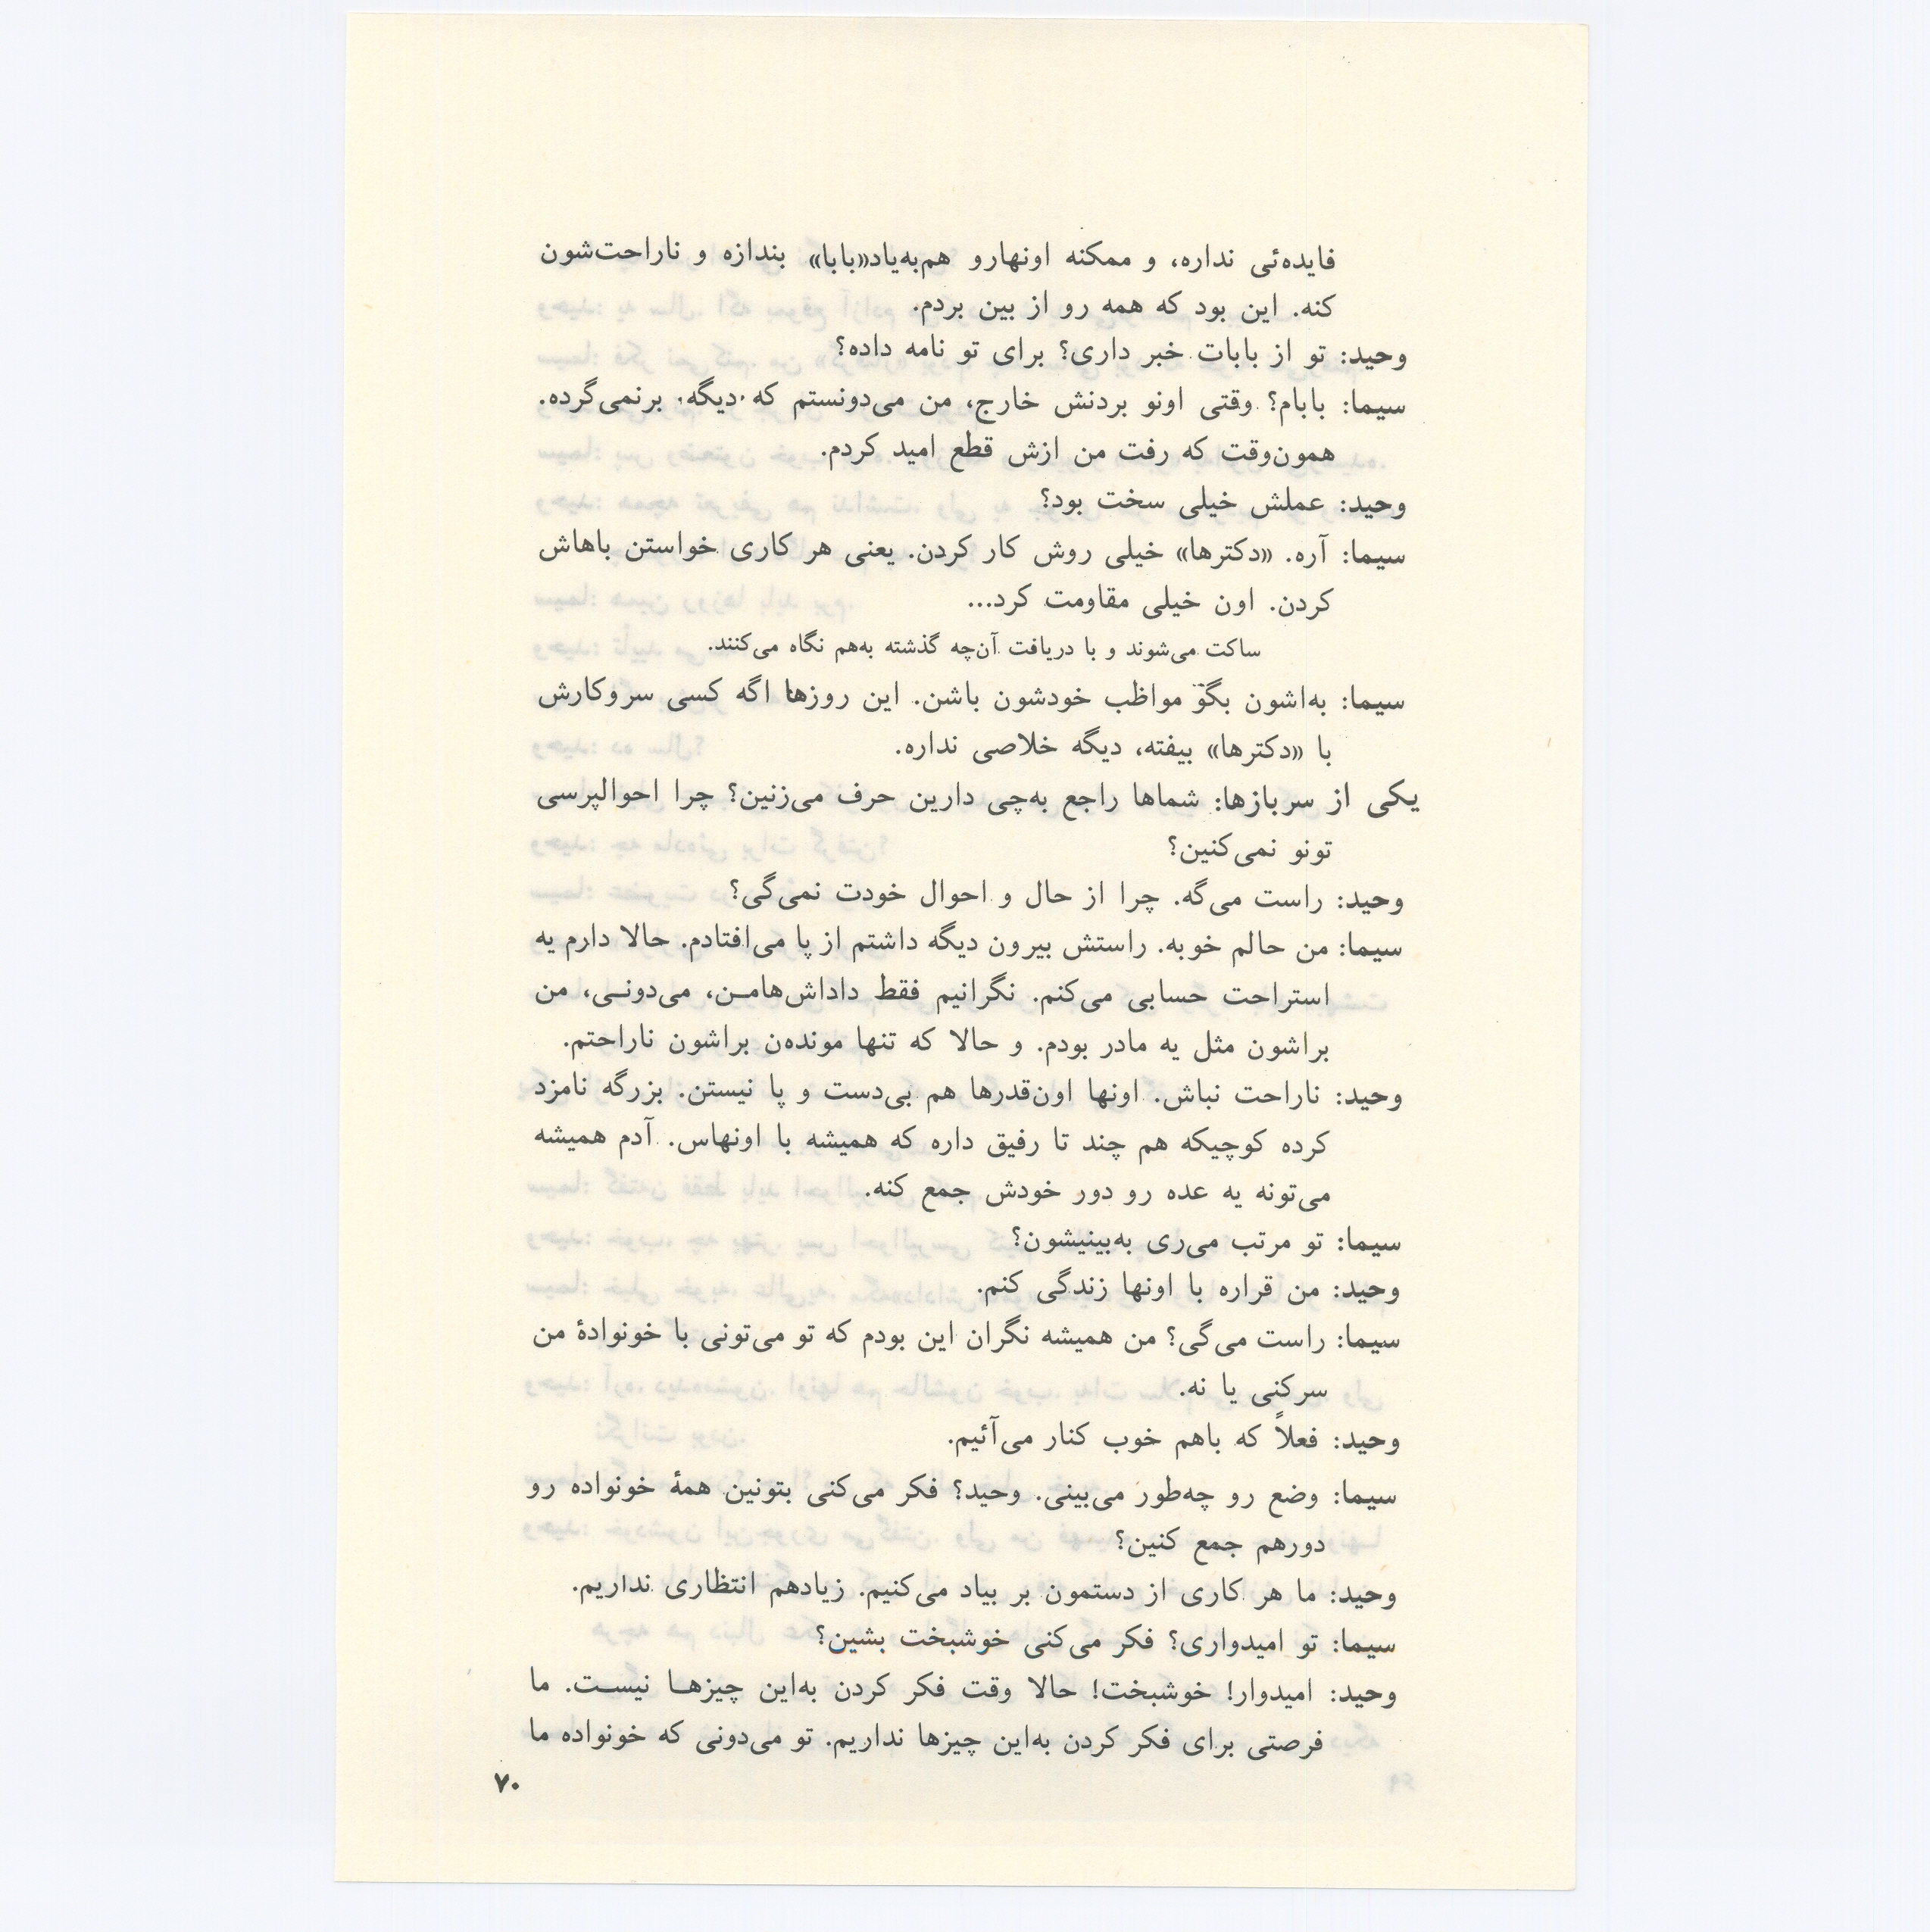 فایده‌ئی نداره، و ممکنه اونهارو هم‌به‌یاد«بابا» بندازه و ناراحت‌شون
کنه. این بود که همه رو از بین بردم.
وحید: تو از بابات خبر داری؟ برای تو نامه داده؟
سیما: بابام؟ وقتی اونو بردنش خارج، من می‌دونستم که دیگه برنمی‌گرده.
همون‌وقت که رفت من ازش قطع امید کردم.
وحید: عملش خیلی سخت بود؟
سیما: آره. «دکترها» خیلی روش کار کردن. یعنی هر کاری خواستن باهاش
کردن. اون خیلی مقاومت کرد...
ساکت می‌شوند و با دریافت آن‌چه گذشته به‌هم نگاه می‌کنند.
سیما: به‌اشون بگو مواظب خودشون باشن. این روزها اگه کسی سروکارش
با «دکترها» بیفته، دیگه خلاصی نداره.
یکی از سربازها: شماها راجع به‌چی دارین حرف می‌زنین؟ چرا احوالپرسی
تونو نمی‌کنین؟
وحید: راست می‌گه. چرا از حال و احوال خودت نمی‌گی؟
سیما: من حالم خوبه. راستش بیرون دیگه داشتم از پا می‌افتادم. حالا دارم یه
استراحت حسابی می‌کنم. نگرانیم فقط داداش‌هامـن، می‌دونـی، من
براشون مثل یه مادر بودم. و حالا که تنها مونده‌ن براشون ناراحتم.
وحید: ناراحت نباش. اونها اون‌قدرها هم بی‌دست و پا نیستن. بزرگه نامزد
کرده کوچیکه هم چند تا رفیق داره که همیشه با اونهاس. آدم همیشه
می‌تونه یه عده رو دور خودش جمع کنه.
سیما: تو مرتب می‌ری به‌بینیشون؟
وحید: من قراره با اونها زندگی کنم.
سیما: راست می‌گی؟ من همیشه نگران این بودم که تو می‌تونی با خونوادهٔ من
سرکنی یا نه.
وحید: فعلاً که باهم خوب کنار می‌آئیم.
سیما: وضع رو چه‌طور می‌بینی. وحید؟ فکر می‌کنی بتونین همهٔ خونواده رو
دورهم جمع کنین؟
وحید: ما هر کاری از دستمون بر بیاد می‌کنیم. زیادهم انتظاری نداریم.
سیما: تو امیدواری؟ فکر می‌کنی خوشبخت بشین؟
وحید: امیدوار! خوشبخت! حالا وقت فکر کردن به‌این چیزهـا نیسـت. ما
فرصتی برای فکر کردن به‌این چیزها نداریم. تو می‌دونی که خونواده ما
۷۰